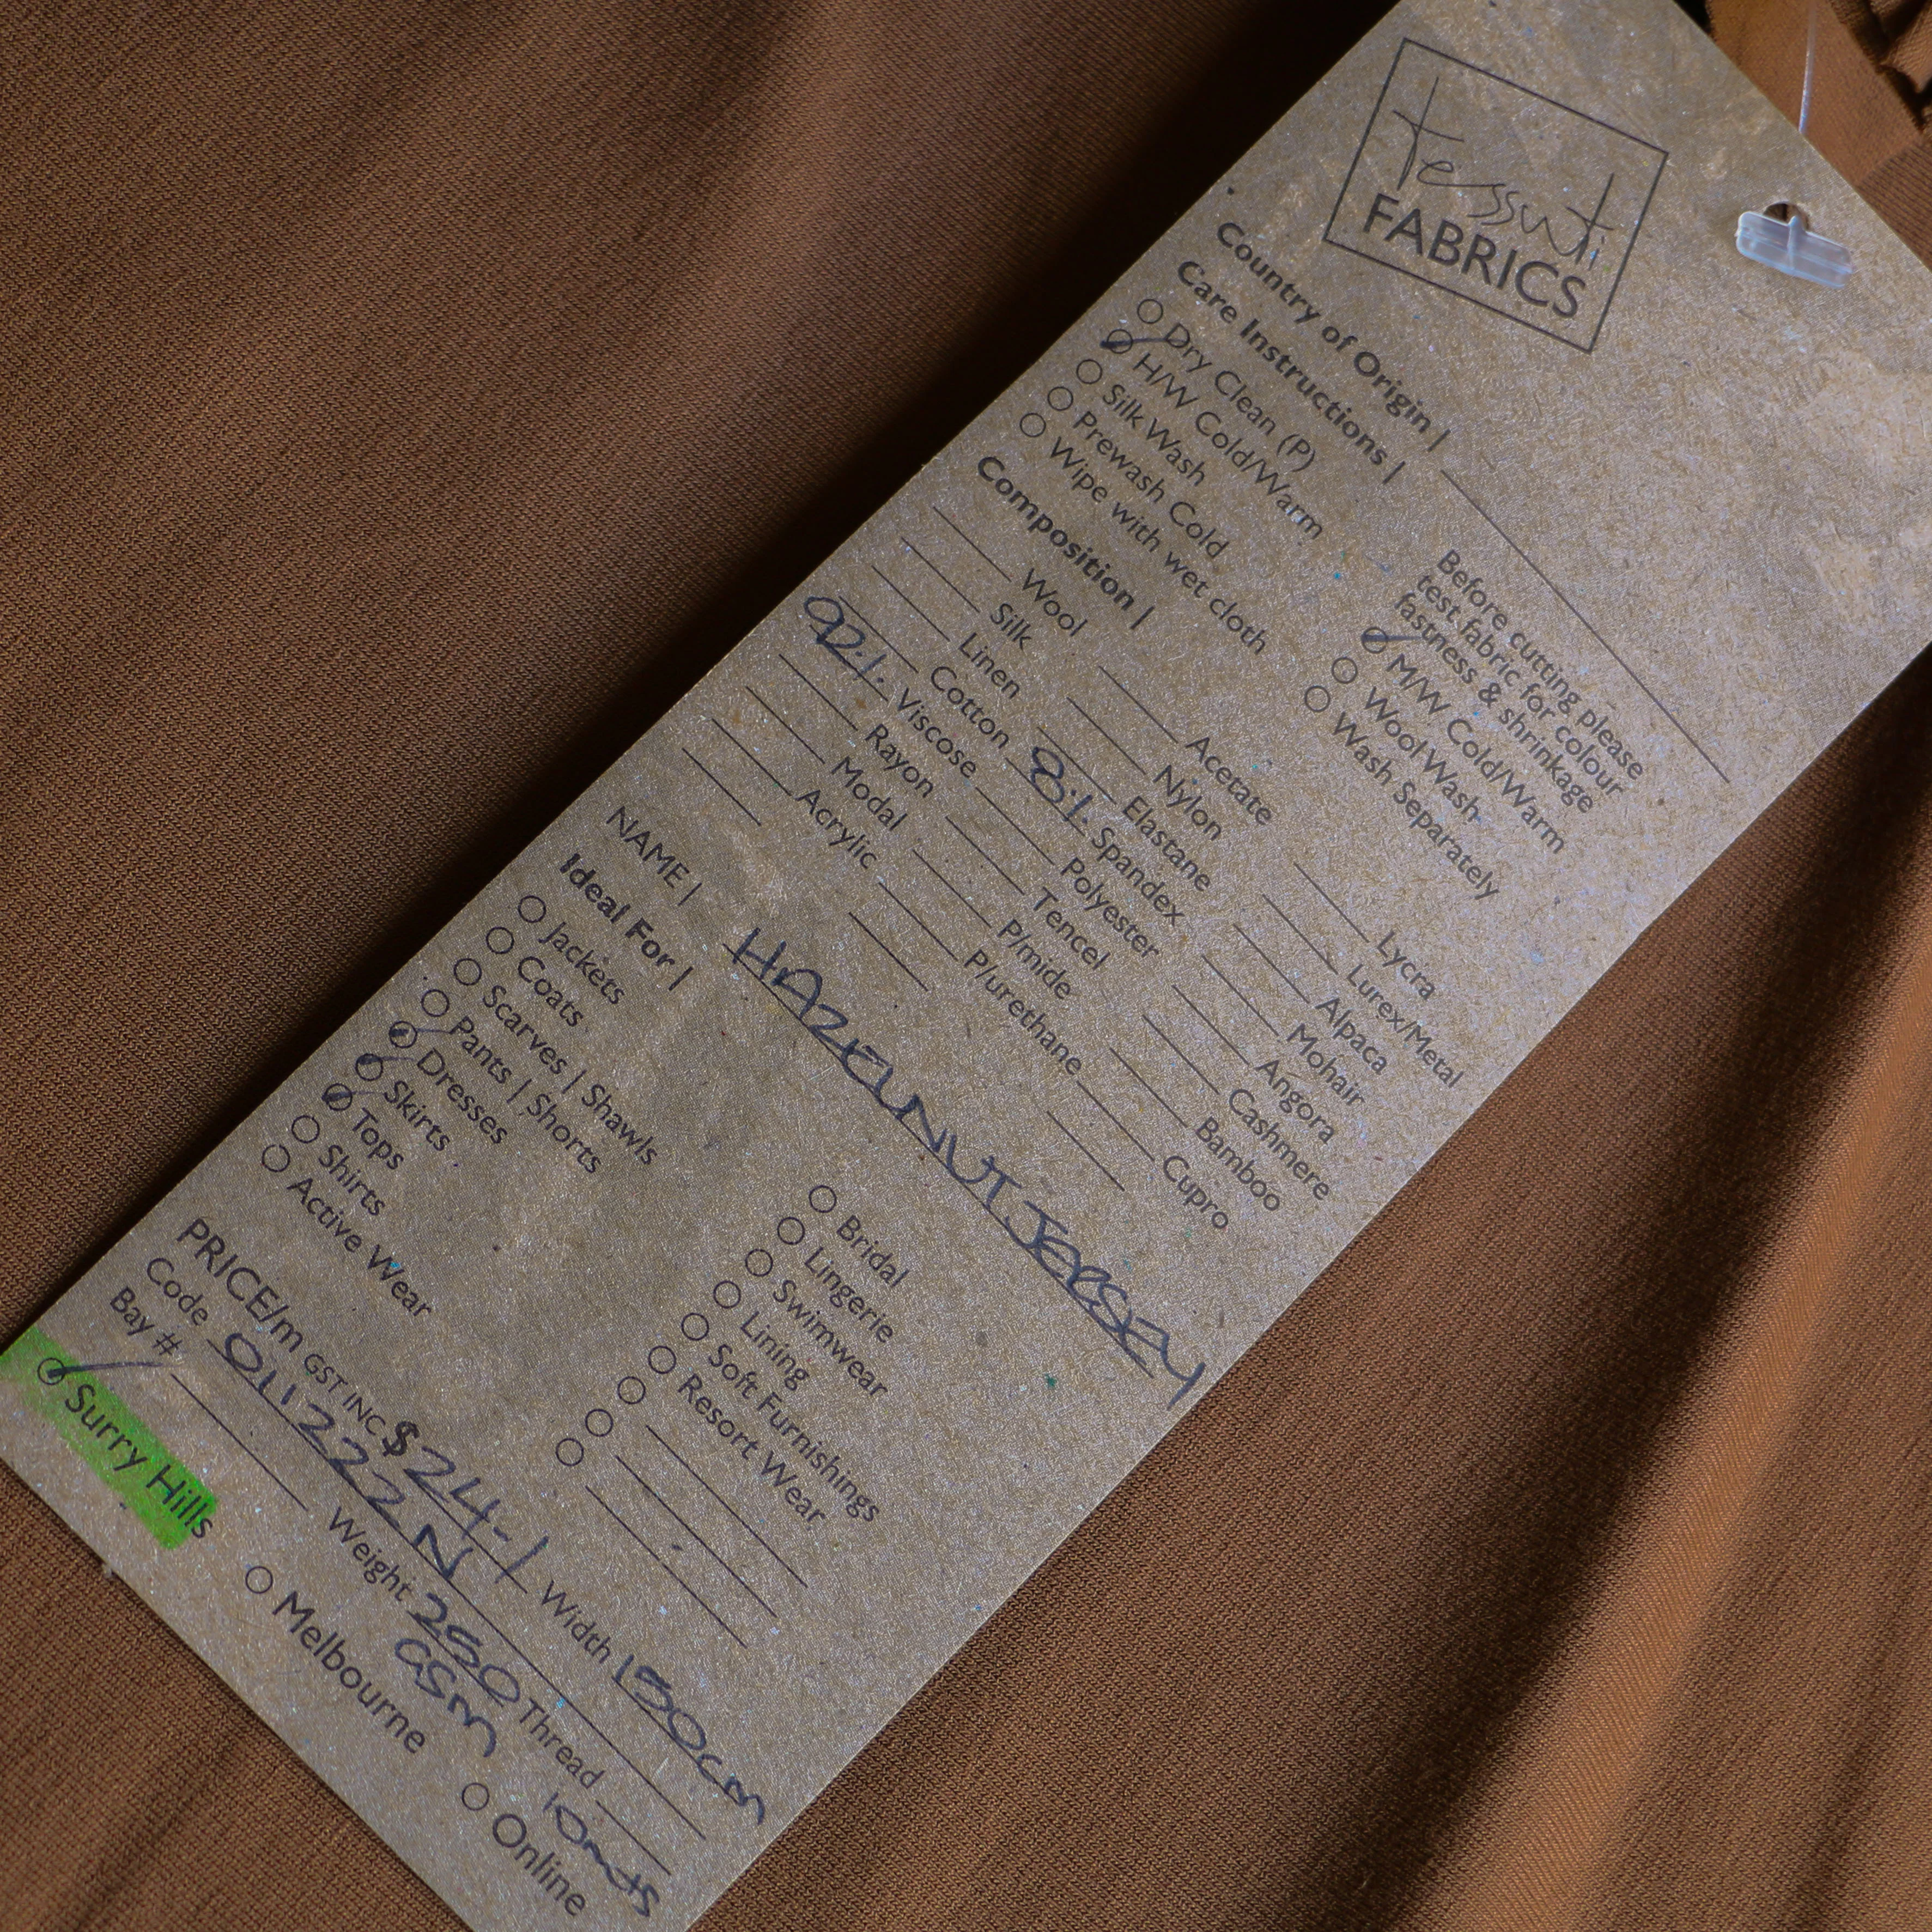 tessuti
FABRICS
Country of Origin |
Care Instructions |
Dry Clean (P)
H/W Cold/Warm
Silk Wash
Prewash Cold
Wipe with wet cloth
Before cutting please
test fabric for colour
fastness & shrinkage
M/W Cold/Warm
Wool Wash
Wash Separately
Composition |
Wool
Silk
Linen
Cotton
92% Viscose
Rayon
Modal
Acrylic
Acetate
Nylon
Elastane
8% Spandex
Polyester
Tencel
P/mide
P/urethane
Lycra
Lurex/Metal
Alpaca
Mohair
Angora
Cashmere
Bamboo
Cupro
NAME | HAZELNUT JERSEY
Ideal For |
Jackets
Coats
Scarves | Shawls
Pants | Shorts
Dresses
Skirts
Tops
Shirts
Active Wear
Bridal
Lingerie
Swimwear
Lining
Soft Furnishings
Resort Wear
PRICE/m GST INC $ 24-1 Width 150cm
Code 011222N
Bay # Weight 250 GSM Thread
10mts
Surry Hills Melbourne Online